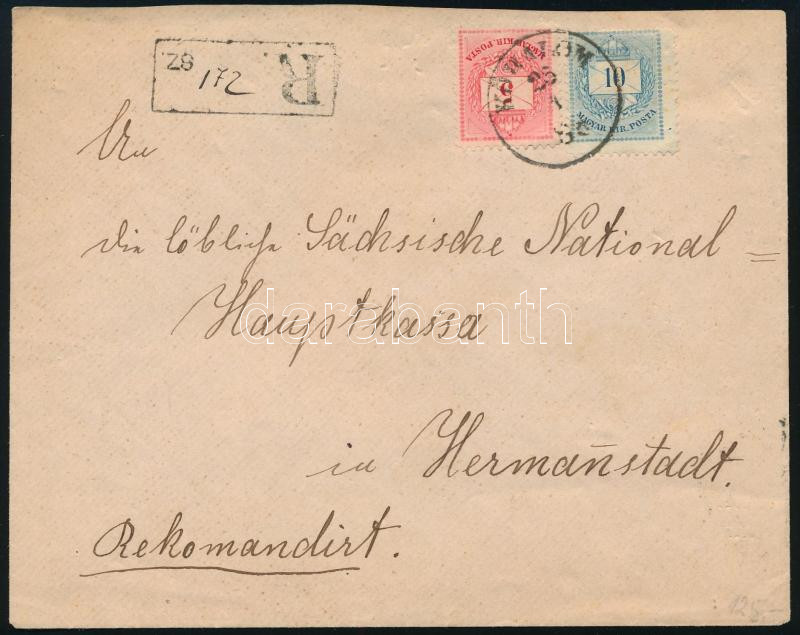 R
SZ.
172
5
MAGYAR KIR. POSTA
10
MAGYAR KIR. POSTA
22
An
die löbliche Sächsische National=
Hauptkassa
in Hermannstadt.
Rekomandirt.
darabanth
125,-